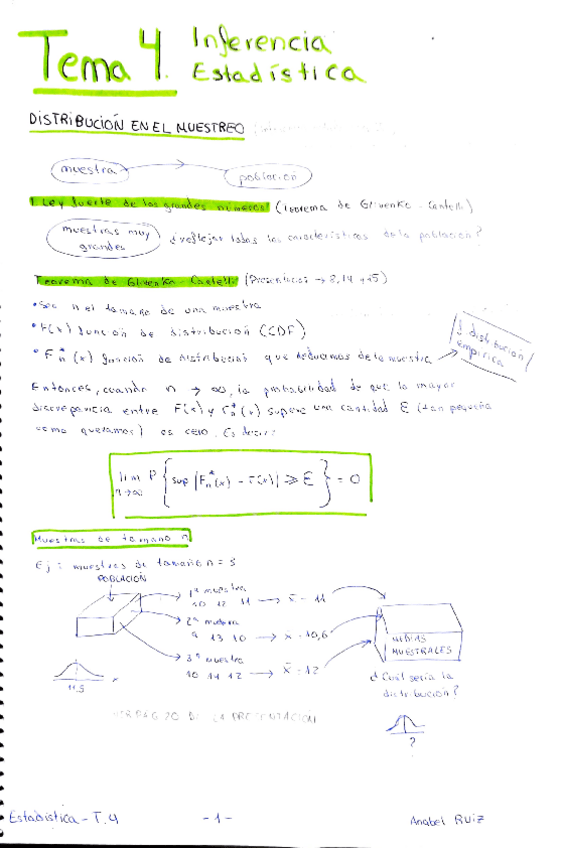 Tema 4. Inferencia
Estadística
DISTRIBUCIÓN EN EL MUESTREO
muestra
población
1. Ley fuerte de los grandes números (Teorema de Glivenko-Cantelli)
muestras muy
grandes
¿reflejar todas las características de la población?
Teorema de Glivenko-Cantelli (Presentacion → 8, 14 y 15)
• Sea n el tamaño de una muestra
• F(x) función de distribución (CDF)
• F*n(x) función de distribución que deducimos de la muestra
f distribución
empírica
Entonces, cuando n → ∞, la probabilidad de que la mayor
discrepancia entre F(x) y F*n(x) supere una cantidad E (tan pequeña
como queramos) es cero. Es decir:
lim P { sup |F*n(x) - F(x)| ≥ E } = 0
n→∞
Muestras de tamaño n
Ej: muestras de tamaño n = 3
POBLACIÓN
1ª muestra
10 12 11 → x̄ = 11
2ª muestra
9 13 10 → x̄ = 10,6
3ª muestra
10 14 12 → x̄ = 12
MEDIAS
MUESTRALES
11.5
¿Cuál sería la
distribución?
?
VER PAG 20 DE LA PRESENTACIÓN
Estadística - T.4
- 1 -
Anabel Ruiz